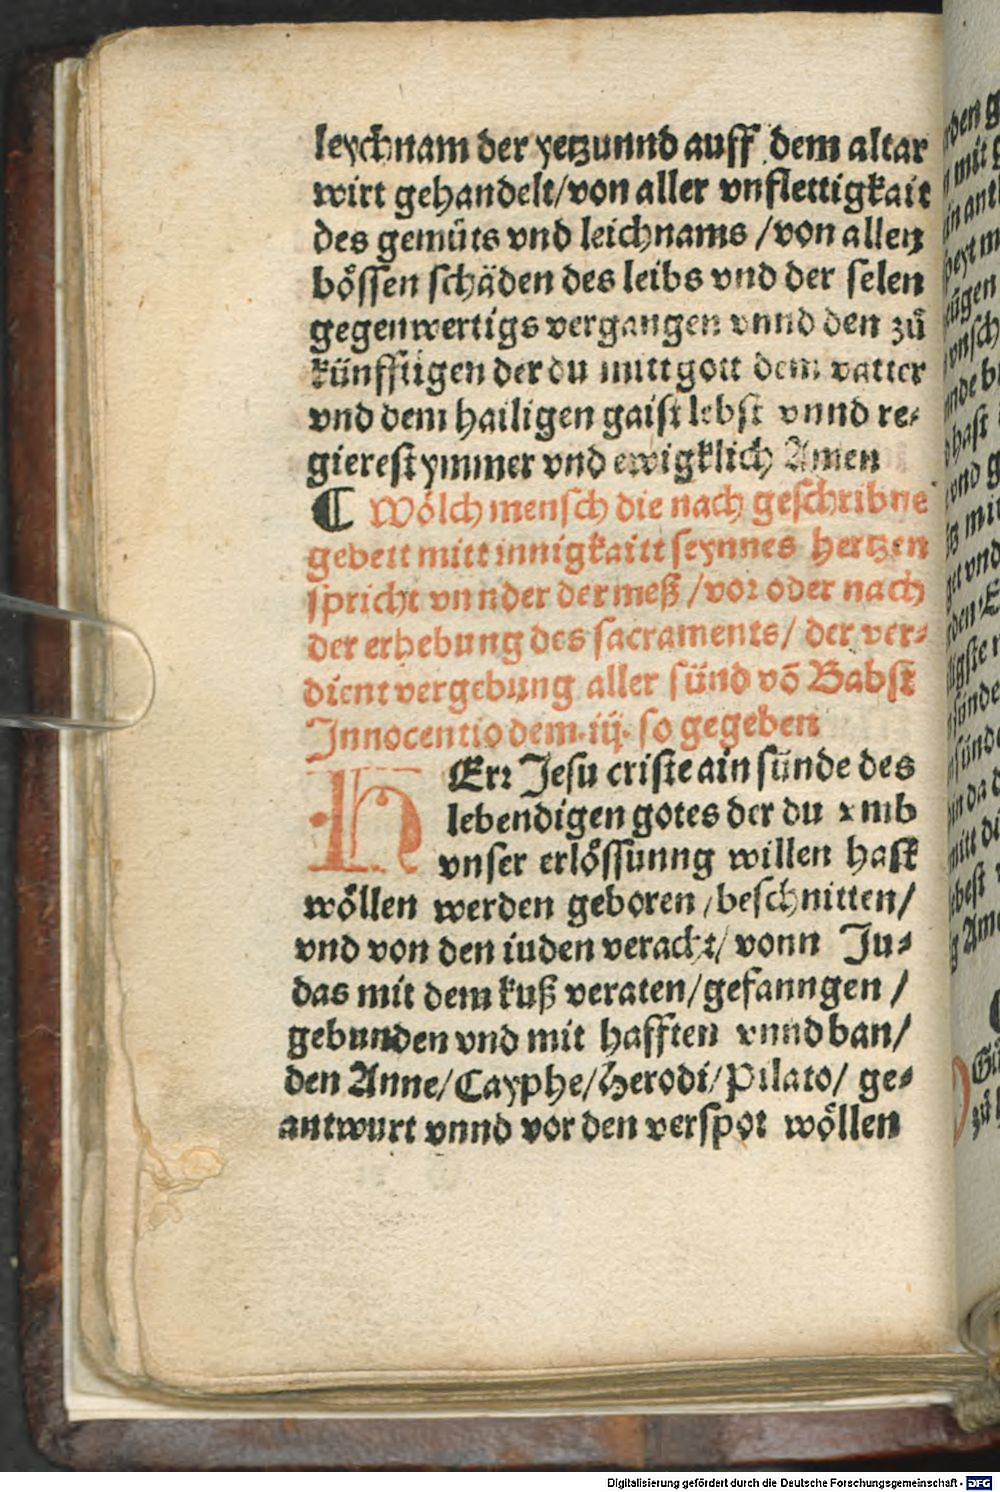 leychnam der yetzunnd auff dem altar
wirt gehandelt/von aller vnflettigkait
des gemüts vnd leichnams /von allen
bössen schäden des leibs vnd der selen
gegenwertigs vergangen vnnd den zů
künfftigen der du mitt gott dem vatter
vnd dem hailigen gaist lebst vnnd re-
gierest ymmer vnd ewigklich Amen
¶ Wölch mensch die nach geschribne
gebett mitt innigkaitt seynnes hertzen
spricht vnnder der meß /vor oder nach
der erhebung des sacraments/ der ver-
dient vergebung aller sünd võ Babst
Innocentio dem .iij. so gegeben
HErr Jesu criste ain sünde des
lebendigen gotes der du vmb
vnser erlössunng willen hast
wöllen werden geboren /beschnitten/
vnd von den iuden veracht/ vonn Ju-
das mit dem kuß veraten/gefanngen /
gebunden vnd mit hafften vnnd ban/
den Anne/Cayphe/Herodi/Pilato/ ge-
antwurt vnnd vor den verspot wöllen
Digitalisierung gefördert durch die Deutsche Forschungsgemeinschaft - DFG